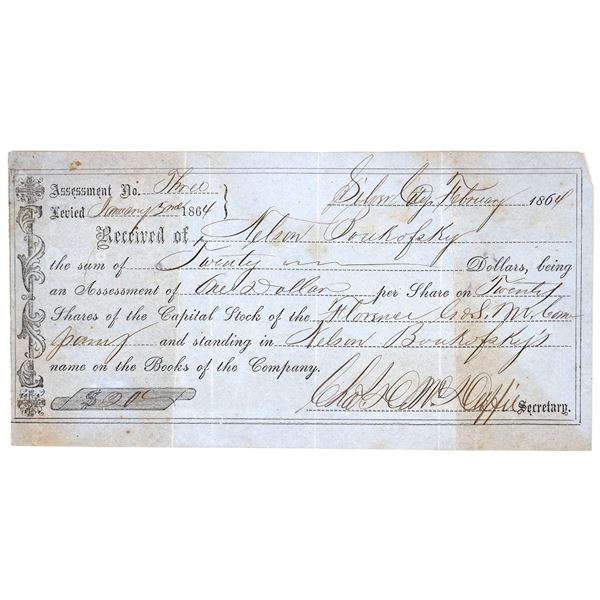 Assessment No. Three
Levied January 2nd 1864
Silver City, February 1864
Received of Nelson Boukofsky
the sum of Twenty Dollars, being
an Assessment of One Dollar per Share on Twenty
Shares of the Capital Stock of the Florence G & S. M. Com
pany and standing in Nelson Boukofsky's
name on the Books of the Company.
$20
McDuffie Secretary.